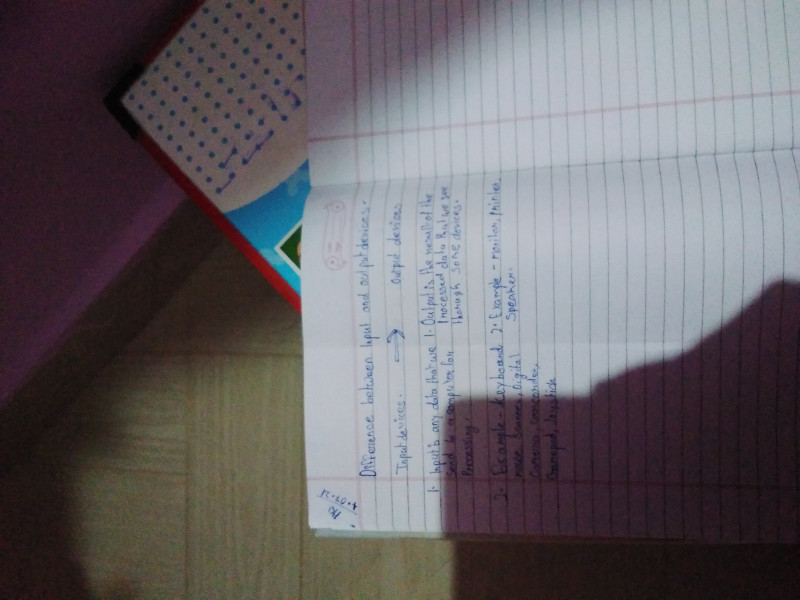 Difference between Input and output devices.
Input devices. → output devices
1. Input is any data that we
send to a computer for
Processing.
2. Example - Keyboard,
mouse, Scanner, Digital
Camera,
Gamepad, Joystick
1. Output is the result of the
Processed data that we see
through some devices.
2. Example - monitor, printer
Speaker.